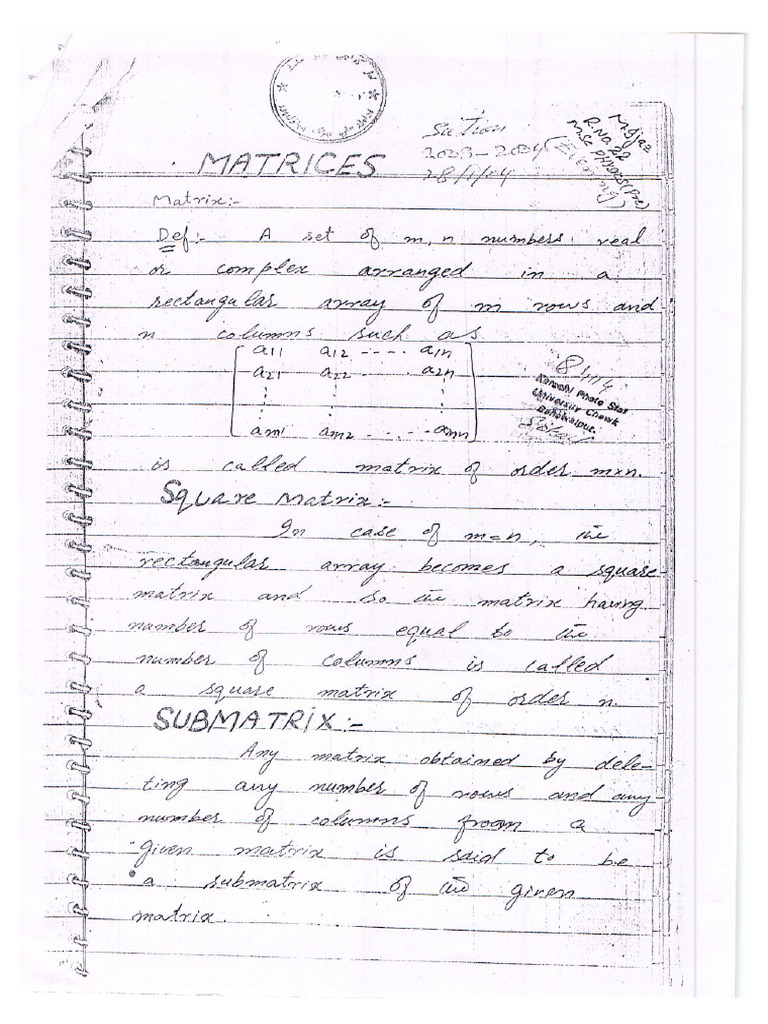 M. Ijaz
R.No. 22
M.Sc PHYSICS (Pre)
(Evening)
2003-2004
28/1/04
MATRICES
Matrix:-
Def:- A set of m, n numbers real
or complex arranged in a
rectangular array of m rows and
n columns such as
a11 a12 ---- a1n
a21 a22 ...... a2n
am1 am2 ...... amn
Karachi Photo Stat
University Chowk
Bahawalpur.
is called matrix of order m×n.
Square Matrix:-
In case of m=n, the
rectangular array becomes a square
matrix and so the matrix having
number of rows equal to the
number of columns is called
a square matrix of order n.
SUBMATRIX:-
Any matrix obtained by dele-
ting any number of rows and any
number of columns from a
given matrix is said to be
a submatrix of the given
matrix.